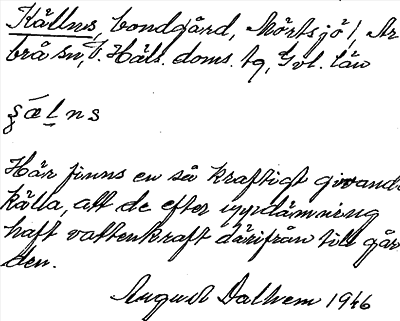 Källns, bondgård, Mörtsjö 1, Ar
brå sn, V. Häls. doms. tg, Gvl. län
Här finns en så kraftigt givande
källa, att de efter uppdämning
haft vattenkraft därifrån till går
den.
August Dalhem 1946